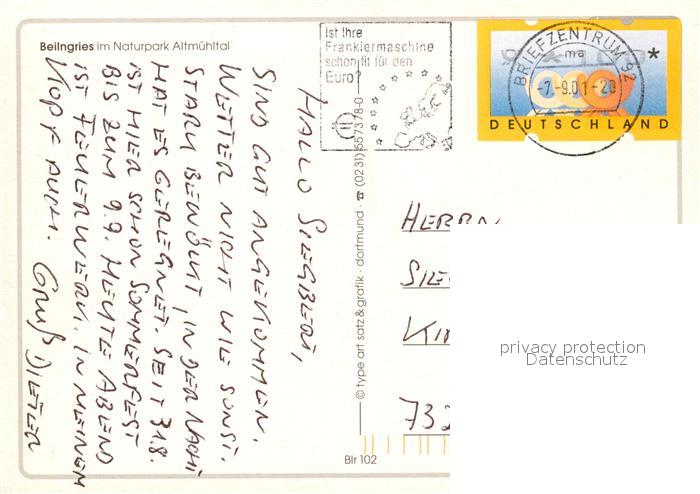 Beilngries im Naturpark Altmühltal
Ist Ihre
Frankiermaschine
schon fit für den
Euro?
BRIEFZENTRUM 92
ma
-7.-9.01-20
*
DEUTSCHLAND
HALLO SIEGBERT,
SIND GUT ANGEKOMMEN.
WETTER NICHT WIE SONST.
STARK BEWÖLKT, IN DER NACHT
HAT ES GEREGNET. SEIT 31.8.
IST HIER SCHON SOMMERFEST
BIS ZUM 9.9. HEUTE ABEND
IST FEUERWERK. IN MEINEM
KOPF AUCH. GRUß DIETER
© type art satz & grafik · dortmund · ☎ (0231) 557378-0
Blr 102
HERRN
SIE
KI
73
privacy protection
Datenschutz